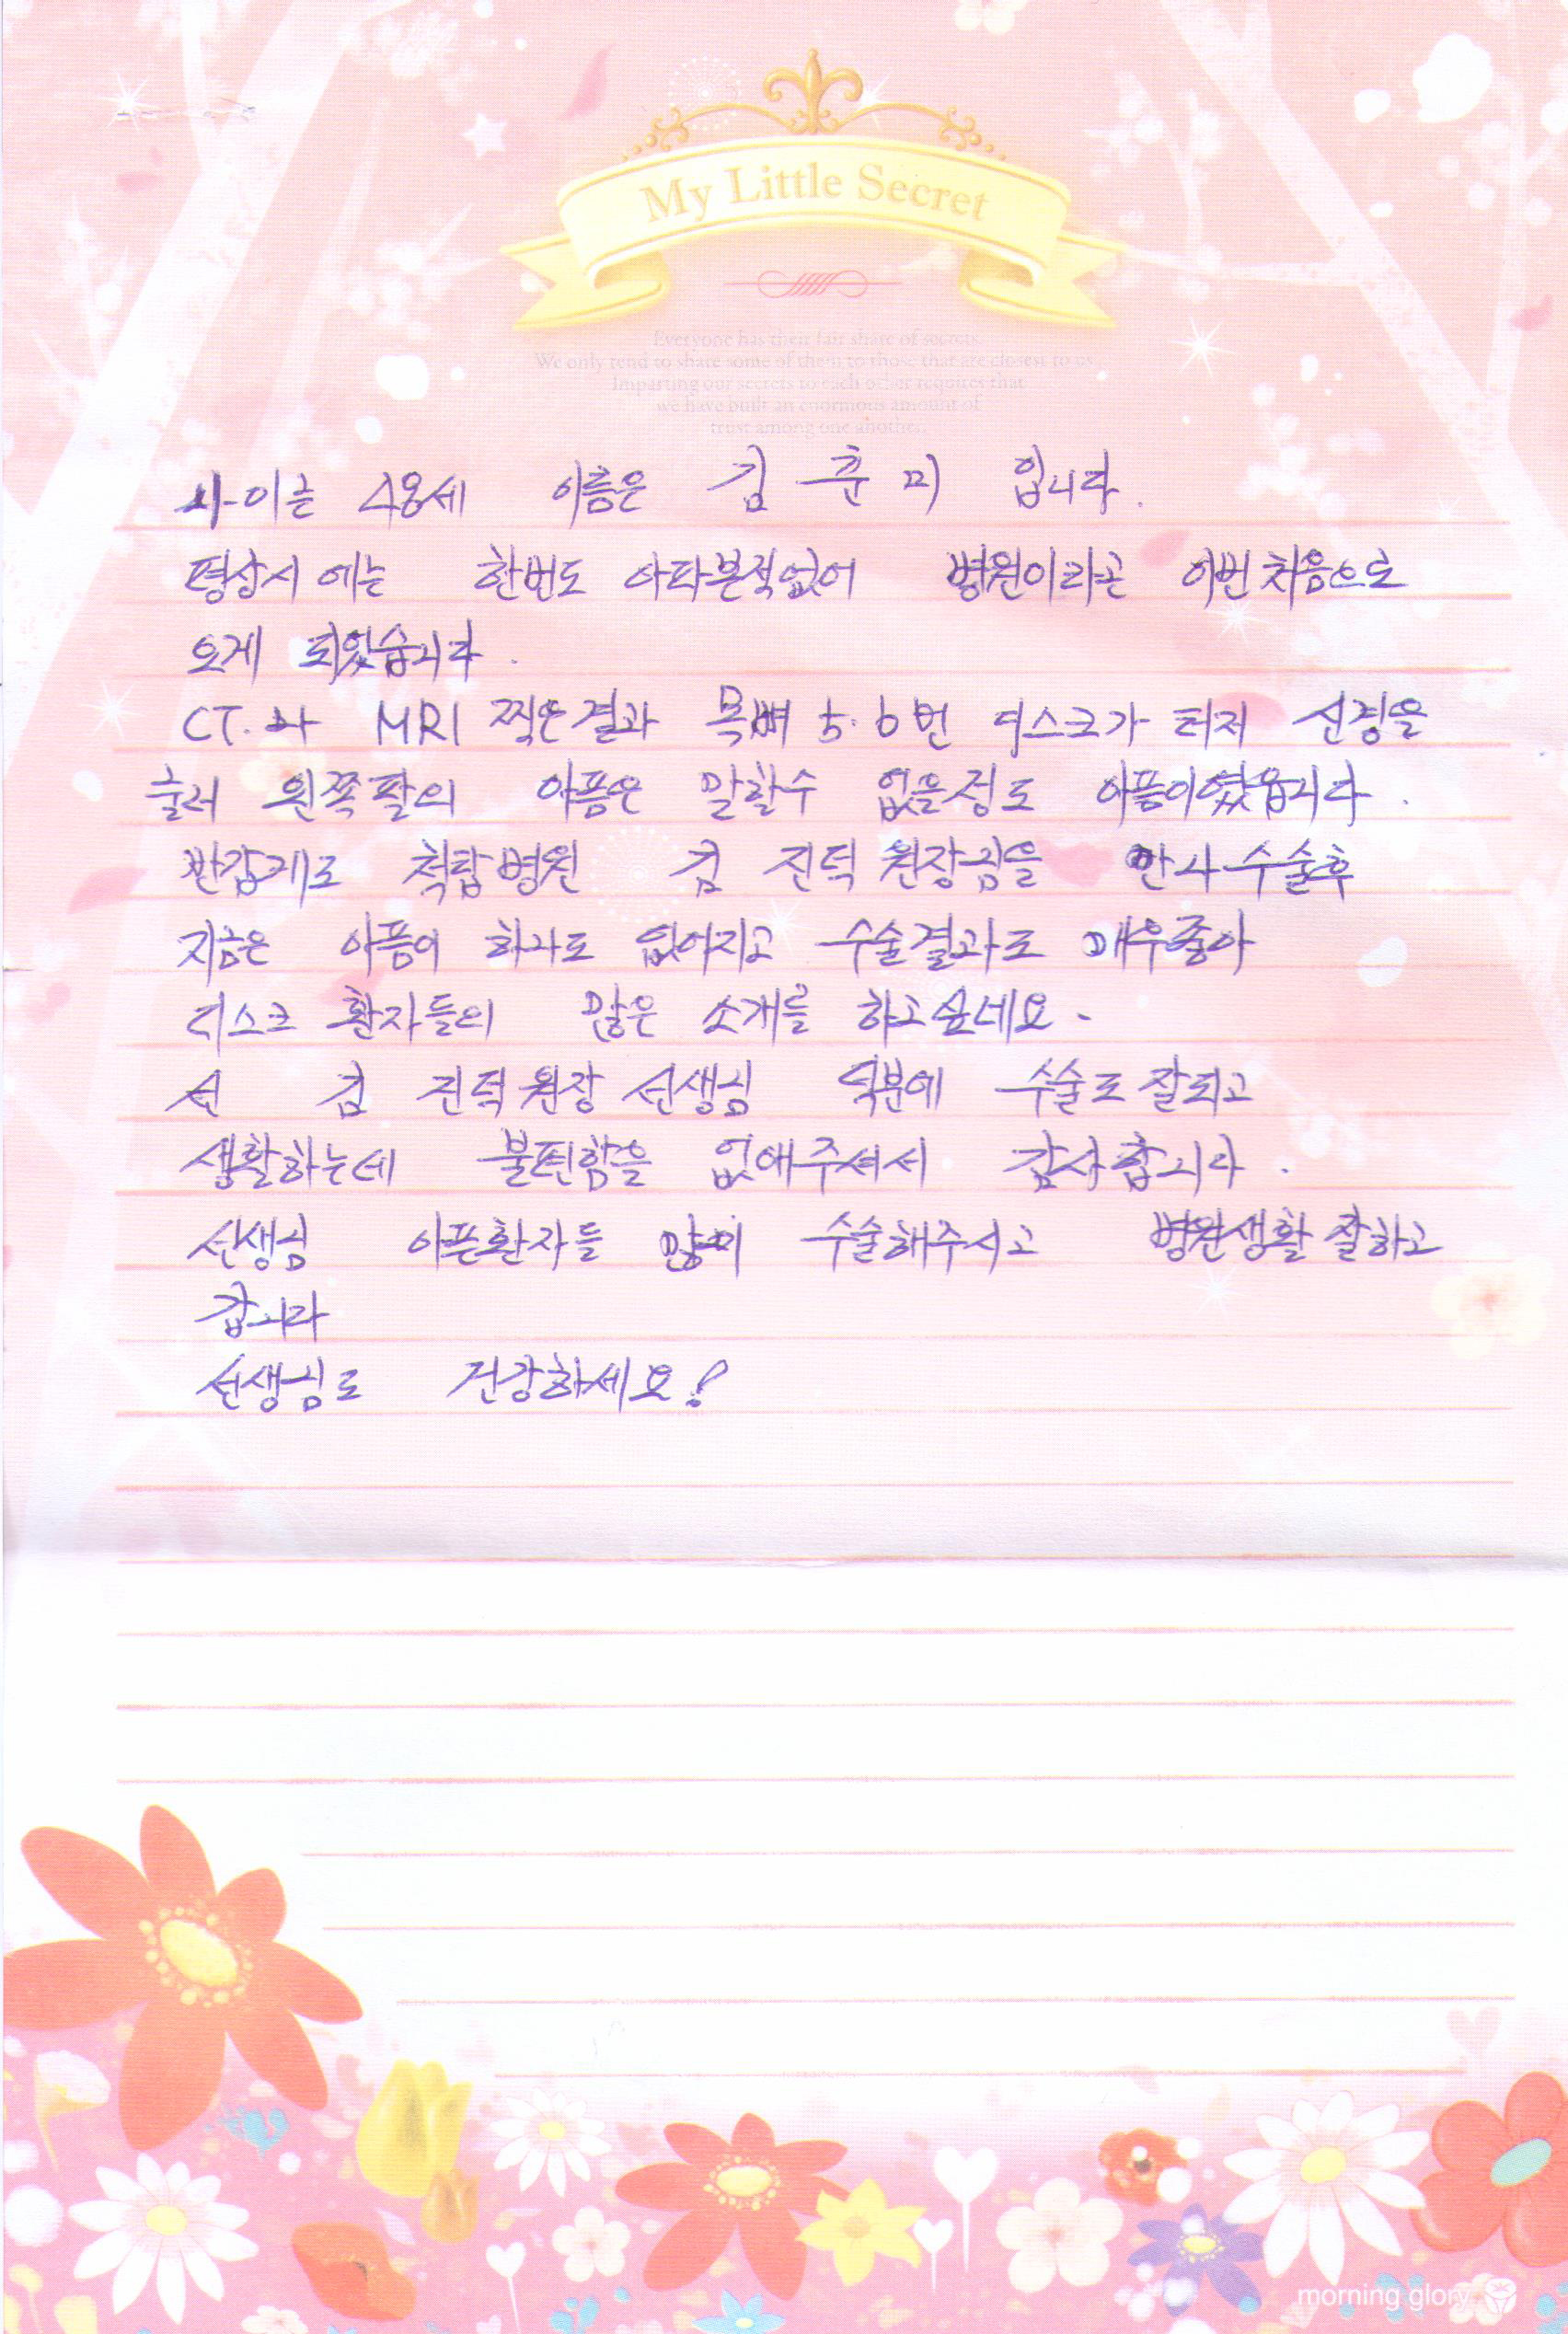 My Little Secret
Everyone has their fair share of secrets.
We only tend to share some of them to those that are closest to us.
Imparting our secrets to each other requires that
we have built an enormous amount of
trust among one another.
나이는 48세 이름은 김 춘 미 입니다.
평상시 에는 한번도 아파본적없어 병원이라곤 이번처음으로
오게 되었습니다.
CT.와 MRI 찍은결과 목뼈 5.6번 디스크가 터저 신경을
눌러 왼쪽팔의 아픔은 말할수 없을정도 아픔이였읍니다.
반갑게도 척탑병원 김 진덕 원장님을 만나수술후
지금은 아픔이 하나도 없어지고 수술결과도 매우좋아
디스크 환자들의 많은 소개를 하고싶네요.
전 김 진덕원장 선생님 덕분에 수술도잘되고
생활하는데 불편함을 없애주셔서 감사합니다.
선생님 아픈환자들 많이 수술해주시고 병원생활 잘하고
갑니다
선생님도 건강하세요!
morning glory